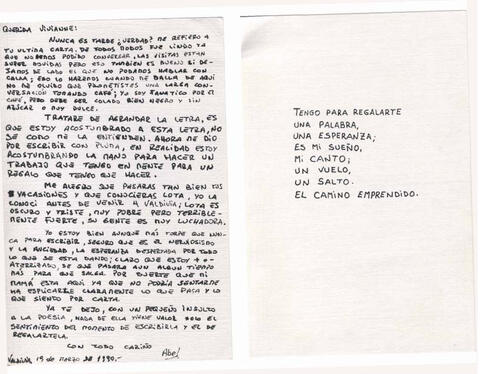 QUERIDA VIVIANNE:
NUNCA ES TARDE ¿VERDAD? ME REFIERO A
TU ULTIMA CARTA. DE TODOS MODOS FUE LINDO YA
QUE NO HEMOS PODIDO CONVERSAR, LAS VISITAS ESTAN
SUPER ABURRIDAS PERO ESO TAMBIEN ES BUENO SI DE-
JAMOS DE LADO EL QUE NO PODAMOS HABLAR CON
CALMA; ESO LO HAREMOS CUANDO ME SALGA DE AQUI
NO ME OLVIDO QUE PROMETISTES UNA LARGA CON-
VERSACION TOMANDO CAFÉ; YO SOY FANATICO POR EL
CAFÉ, PERO DEBE SER COLADO BIEN NEGRO Y SIN
AZÚCAR O MUY DULCE.
TRATARE DE AGRANDAR LA LETRA, ES
QUE ESTOY ACOSTUMBRADO A ESTA LETRA, NO
SE COMO ME LA ENTIENDEN. AHORA ME DIO
POR ESCRIBIR CON PLUMA, EN REALIDAD ESTOY
ACOSTUMBRANDO LA MANO PARA HACER UN
TRABAJO QUE TENGO EN MENTE PARA UN
REGALO QUE TENGO QUE HACER.
ME ALEGRO QUE PASARAS TAN BIEN TUS
VACASIONES Y QUE CONOCIERAS LOTA, YO LA
CONOCI ANTES DE VENIR A VALDIVIA; LOTA ES
OSCURO Y TRISTE, MUY POBRE PERO TERRIBLE-
MENTE FUERTE, SU GENTE ES MUY LUCHADORA.
YO ESTOY BIEN AUNQUE MÁS TORPE QUE NUN-
CA PARA ESCRIBIR, SEGURO QUE ES EL NERVIOSISMO
Y LA ANCIEDAD, LA ESPERANZA DESPERTADA POR TODO
LO QUE SE ESTA DANDO; CLARO QUE ESTOY
ATERRIZADO, DE QUE PASARA AUN ALGUN TIEMPO
MÁS PARA QUE SALGA. POR SUERTE QUE MI
MAMÁ ESTA AQUI YA QUE NO PODRIA SENTARME
HA EXPLICARLE CLARAMENTE LO QUE PASA Y LO
QUE SIENTO POR CARTA.
YA TE DEJO, CON UN PEQUEÑO INSULTO
A LA POESÍA, NADA DE ELLA TIENE VALOR SOLO EL
SENTIMIENTO DEL MOMENTO DE ESCRIBIRLA Y EL DE
REGALARTELA.
CON TODO CARIÑO
Abel
VALDIVIA 19 DE MARZO DE 1990.-
TENGO PARA REGALARTE
UNA PALABRA,
UNA ESPERANZA;
ES MI SUEÑO,
MI CANTO;
UN VUELO,
UN SALTO.
EL CAMINO EMPRENDIDO.